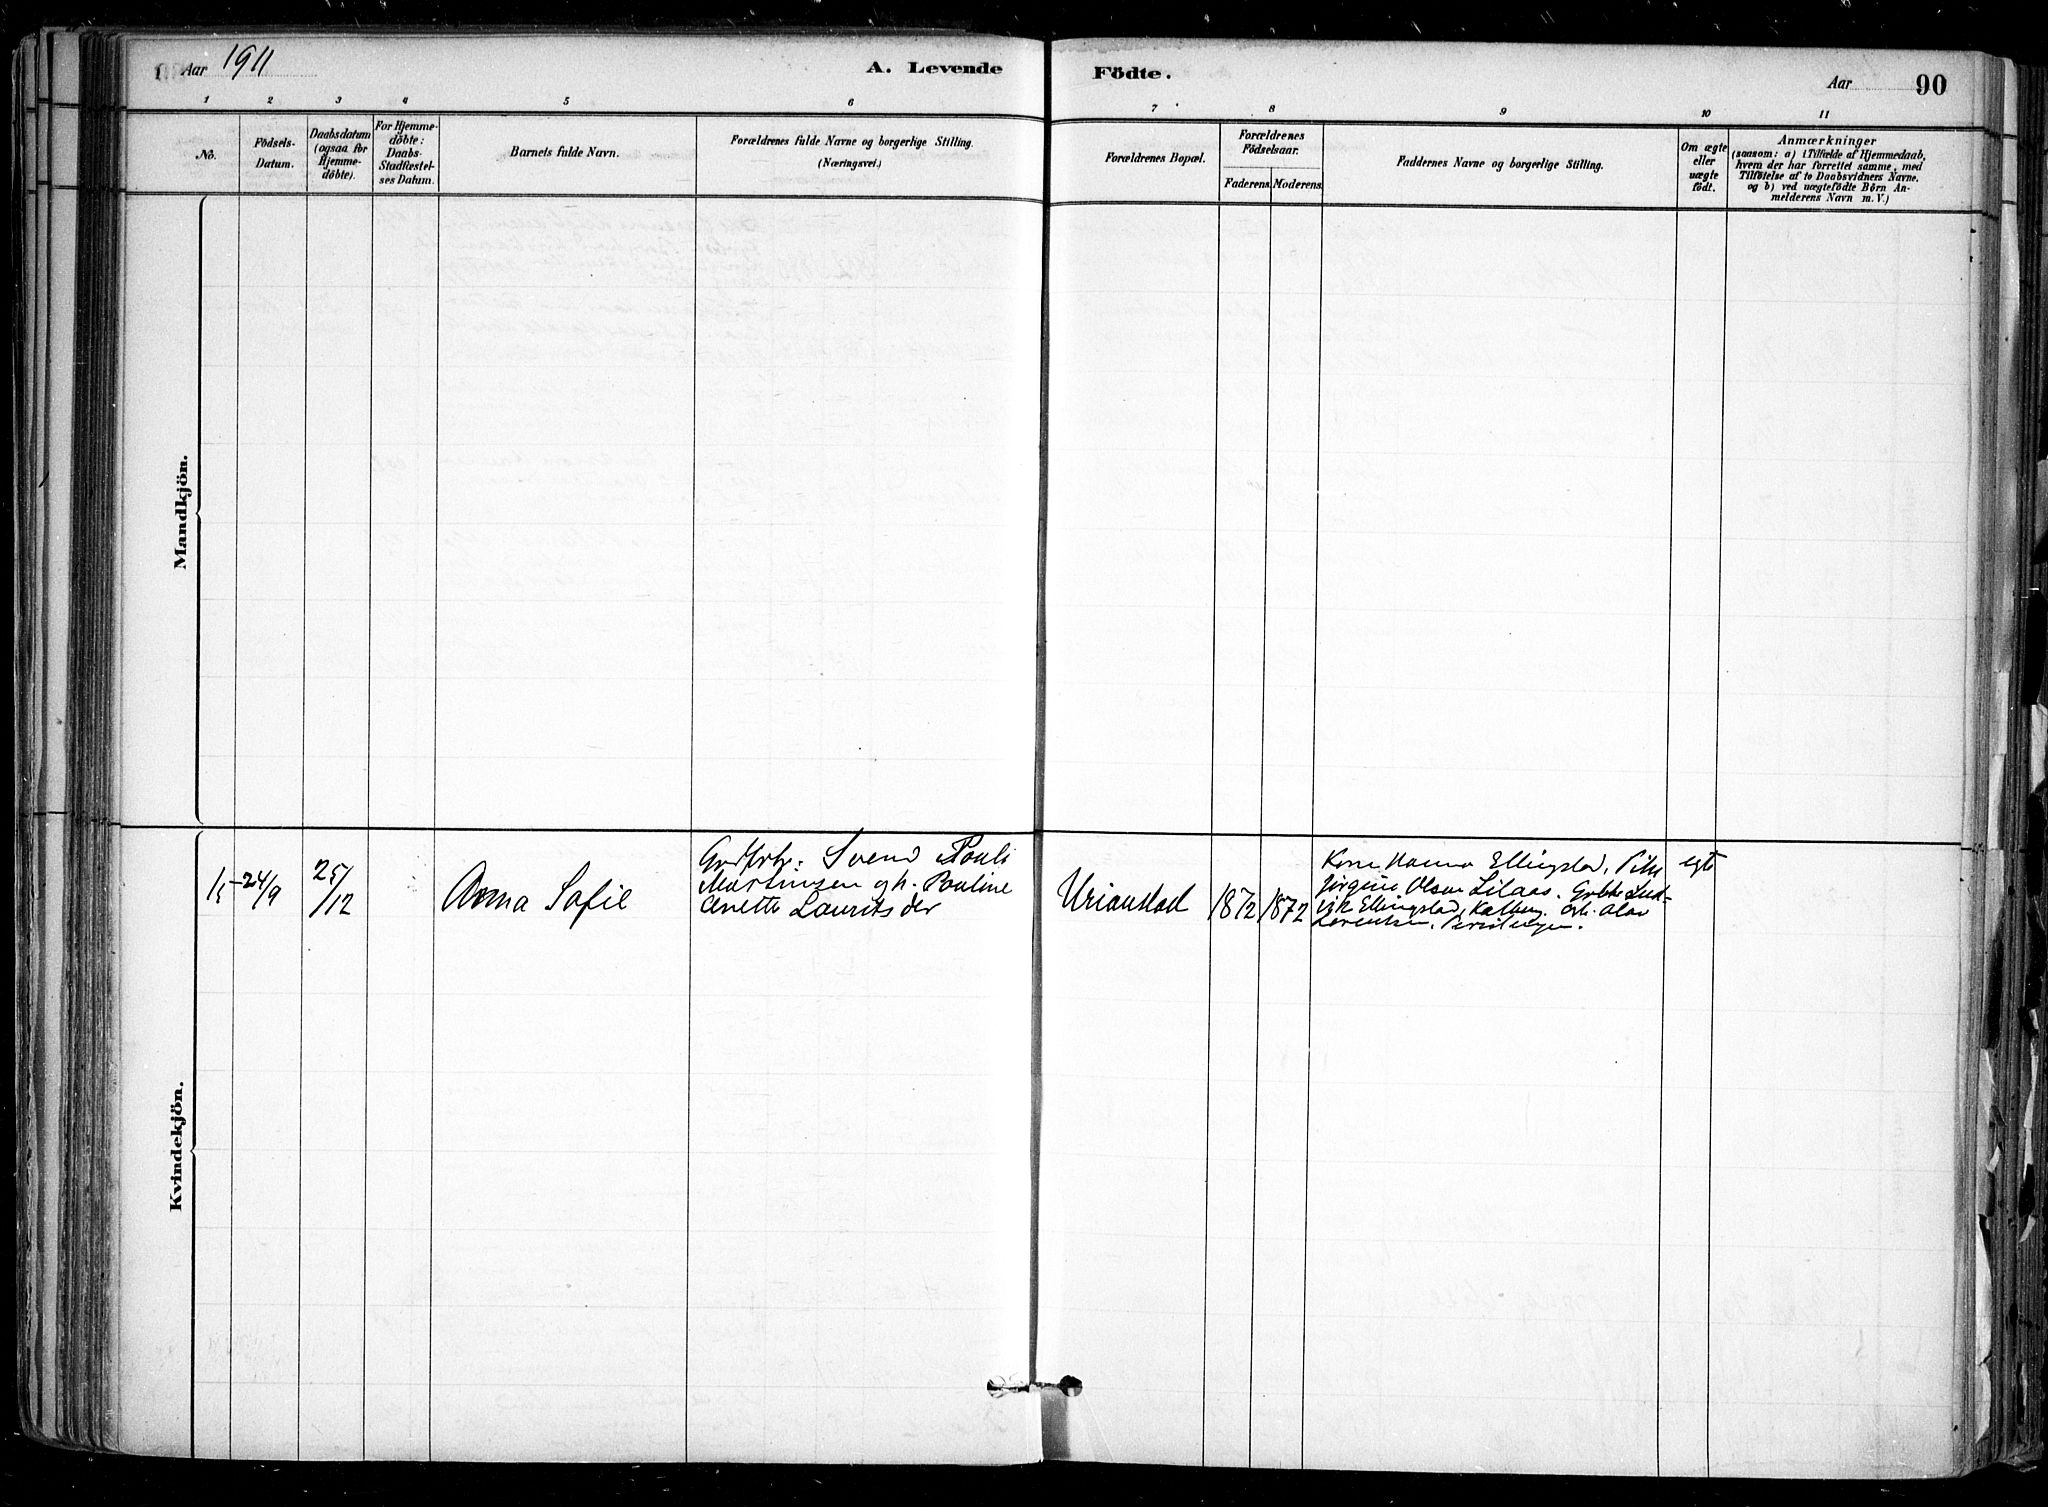 Aar 1911
A. Levende
Födte.
Aar
90
1 2 3 4 5 6 7 8 9 10 11
No.
Födsels-
Datum.
Daabsdatum
(ogsaa for
Hjemme-
döbte).
For Hjemme-
döbte:
Daabs-
Stadfæstel-
ses Datum.
Barnets fulde Navn.
Forældrenes fulde Navne og borgerlige Stilling.
(Næringsvei.)
Forældrenes Bopæl.
Forældrenes
Födselsaar.
Faderens. Moderens.
Faddernes Navne og borgerlige Stilling.
Om ægte
eller
uægte
födt.
Anmærkninger
(saasom: a) i Tilfælde af Hjemmedaab,
hvem der har forrettet samme, med
Tilföielse af to Daabsvidners Navne.
og b) ved uægtefödte Börn An-
melderens Navn m.V.)
Mandkjön.
Kvindekjön.
15
24/9
25/12
Anna Sofie
Svend Pauli
Martinsen og h. Pauline
Anette Lauritsder
Urianstad
1872
1872
Kone Hanna Ellingstad, Pike
Jörgine Olsen Lilaas. Gbbr. Lud-
vik Ellingstad, Kalberg. Gbr. Olav
Lorentsen,
egte